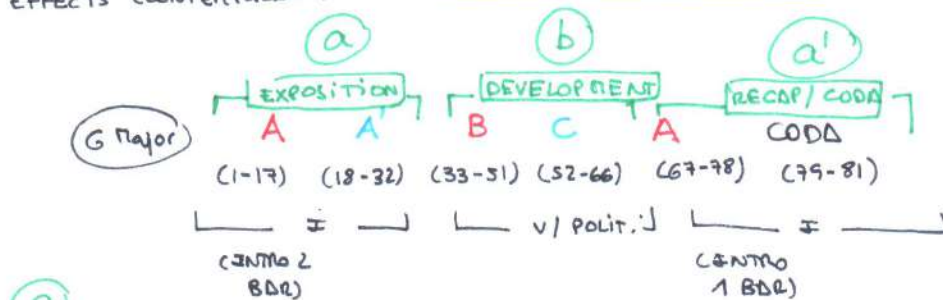 EFFECTS
a b a'
EXPOSITION DEVELOPMENT RECAP/CODA
G Major A A' B C A CODA
(1-17) (18-32) (33-51) (52-66) (67-78) (79-81)
I V/POLIT. I
(INTRO 2 (INTRO
BAR) 1 BAR)
a